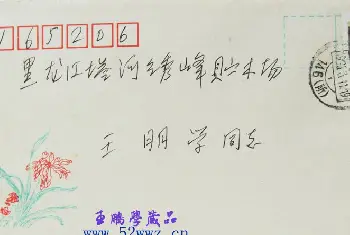 165206
黑龙江塔河县秀峰贮木场
王明学同志
孟鹏學藏品
www.52wwz.cn